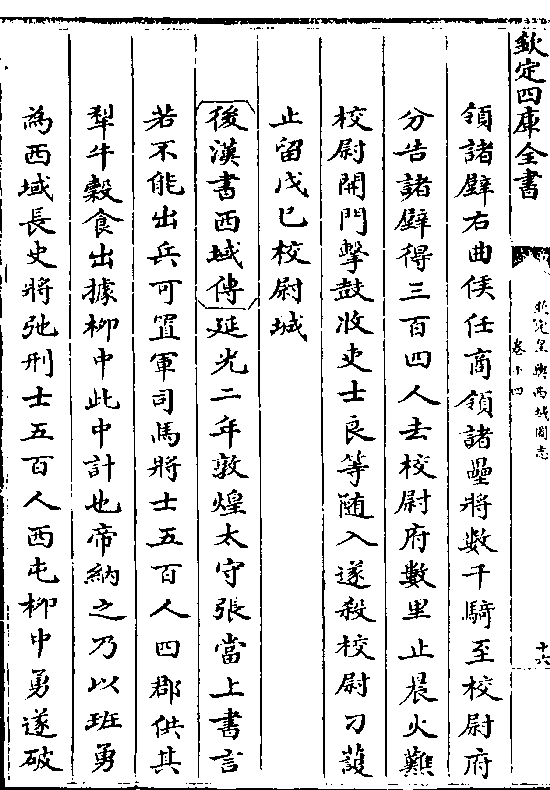 欽定四庫全書
欽定皇輿西域圖志
卷十四
十六
領諸壁右曲侯任商領諸壘將數千騎至校尉府
分告諸壁得三百四人去校尉府數里止晨火難
校尉開門擊鼓收吏士良等随入遂殺校尉刁護
止留戊巳校尉城
後漢書西域傳延光二年敦煌太守張當上書言
若不能出兵可置軍司馬將士五百人四郡供其
犁牛穀食出據柳中此中計也帝納之乃以班勇
為西域長史將弛刑士五百人西屯柳中勇遂破